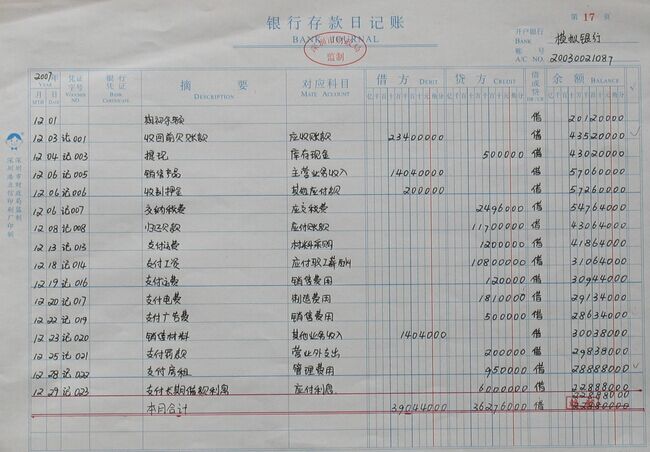 银行存款日记账
BANK JOURNAL
监制
第 17 页
开户银行 模拟银行
BANK
账 号
A/C NO. 20030021087
2007年 凭证号码 银行凭证 摘要 对应科目 借方 DEBIT 贷方 CREDIT 借或贷 余额 BALANCE
月 日 VOUCHER NO. BANK CERTIFICATE DESCRIPTION MATE ACCOUNT 亿千百十万千百十元角分 亿千百十万千百十元角分 DR/CR 亿千百十万千百十元角分
MTH DATE
12 01 期初余额 借 20120000
12 03 记001 收回前欠账款 应收账款 23400000 借 43520000
12 04 记003 提现 库存现金 500000 借 43020000
12 06 记005 销售产品 主营业务收入 14040000 借 57060000
12 06 记006 收到押金 其他应付款 200000 借 57260000
12 06 记007 交纳税费 应交税费 2496000 借 54764000
12 08 记008 归还欠款 应付账款 11700000 借 43064000
12 13 记013 支付运费 材料采购 1200000 借 41864000
12 18 记014 支付工资 应付职工薪酬 10800000 借 31064000
12 19 记016 支付运费 销售费用 120000 借 30944000
12 20 记017 支付电费 制造费用 1810000 借 29134000
12 22 记019 支付广告费 销售费用 500000 借 28634000
12 23 记020 销售材料 其他业务收入 1404000 借 30038000
12 25 记021 支付罚款 营业外支出 200000 借 29838000
12 28 记022 支付房租 管理费用 950000 借 28888000
12 29 记023 支付长期借款利息 应付利息 6000000 借 22888000
22888000
本月合计 39044000 36276000 借
深圳市财政局监制